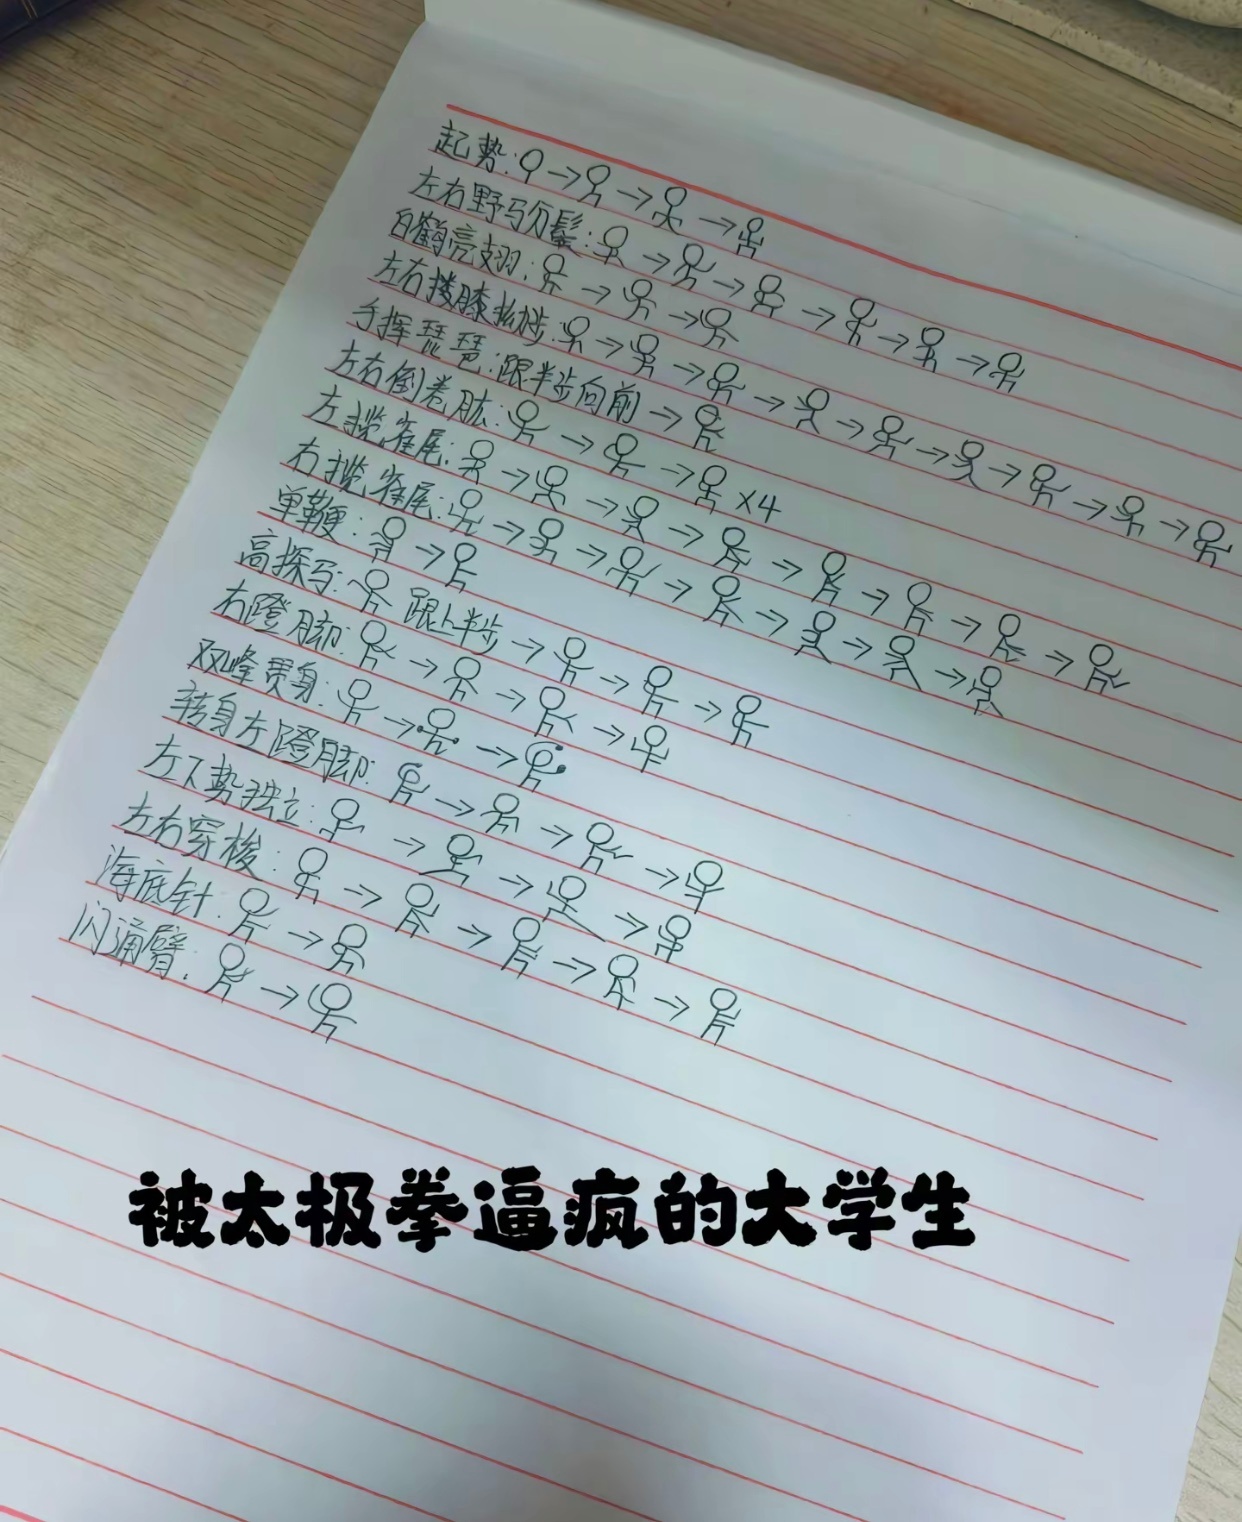 起势:
左右野马分鬃:
白鹤亮翅:
左右搂膝拗步:
手挥琵琶:跟半步向前
左右倒卷肱: ×4
左揽雀尾:
右揽雀尾:
单鞭:
高探马: 跟上半步
右蹬脚:
双峰贯身:
转身左蹬脚:
左下势独立:
左右穿梭:
海底针:
闪通臂:
被太极拳逼疯的大学生